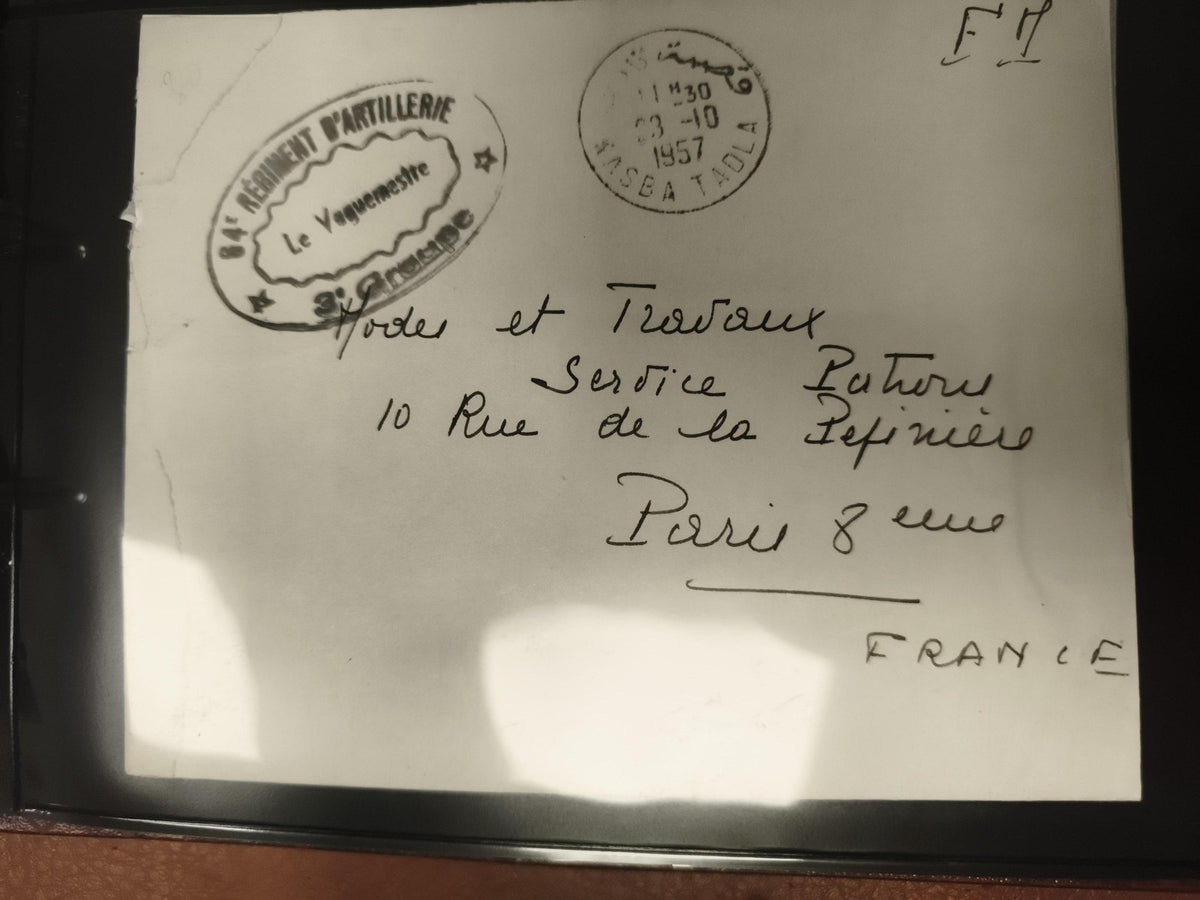 F M
64e RÉGIMENT D'ARTILLERIE
Le Vaguemestre
3e Groupe
قصبة
11H30
23 -10
1957
KASBA TADLA
Modes et Travaux
Service Patrons
10 Rue de la Pépinière
Paris 8 eme
FRANCE